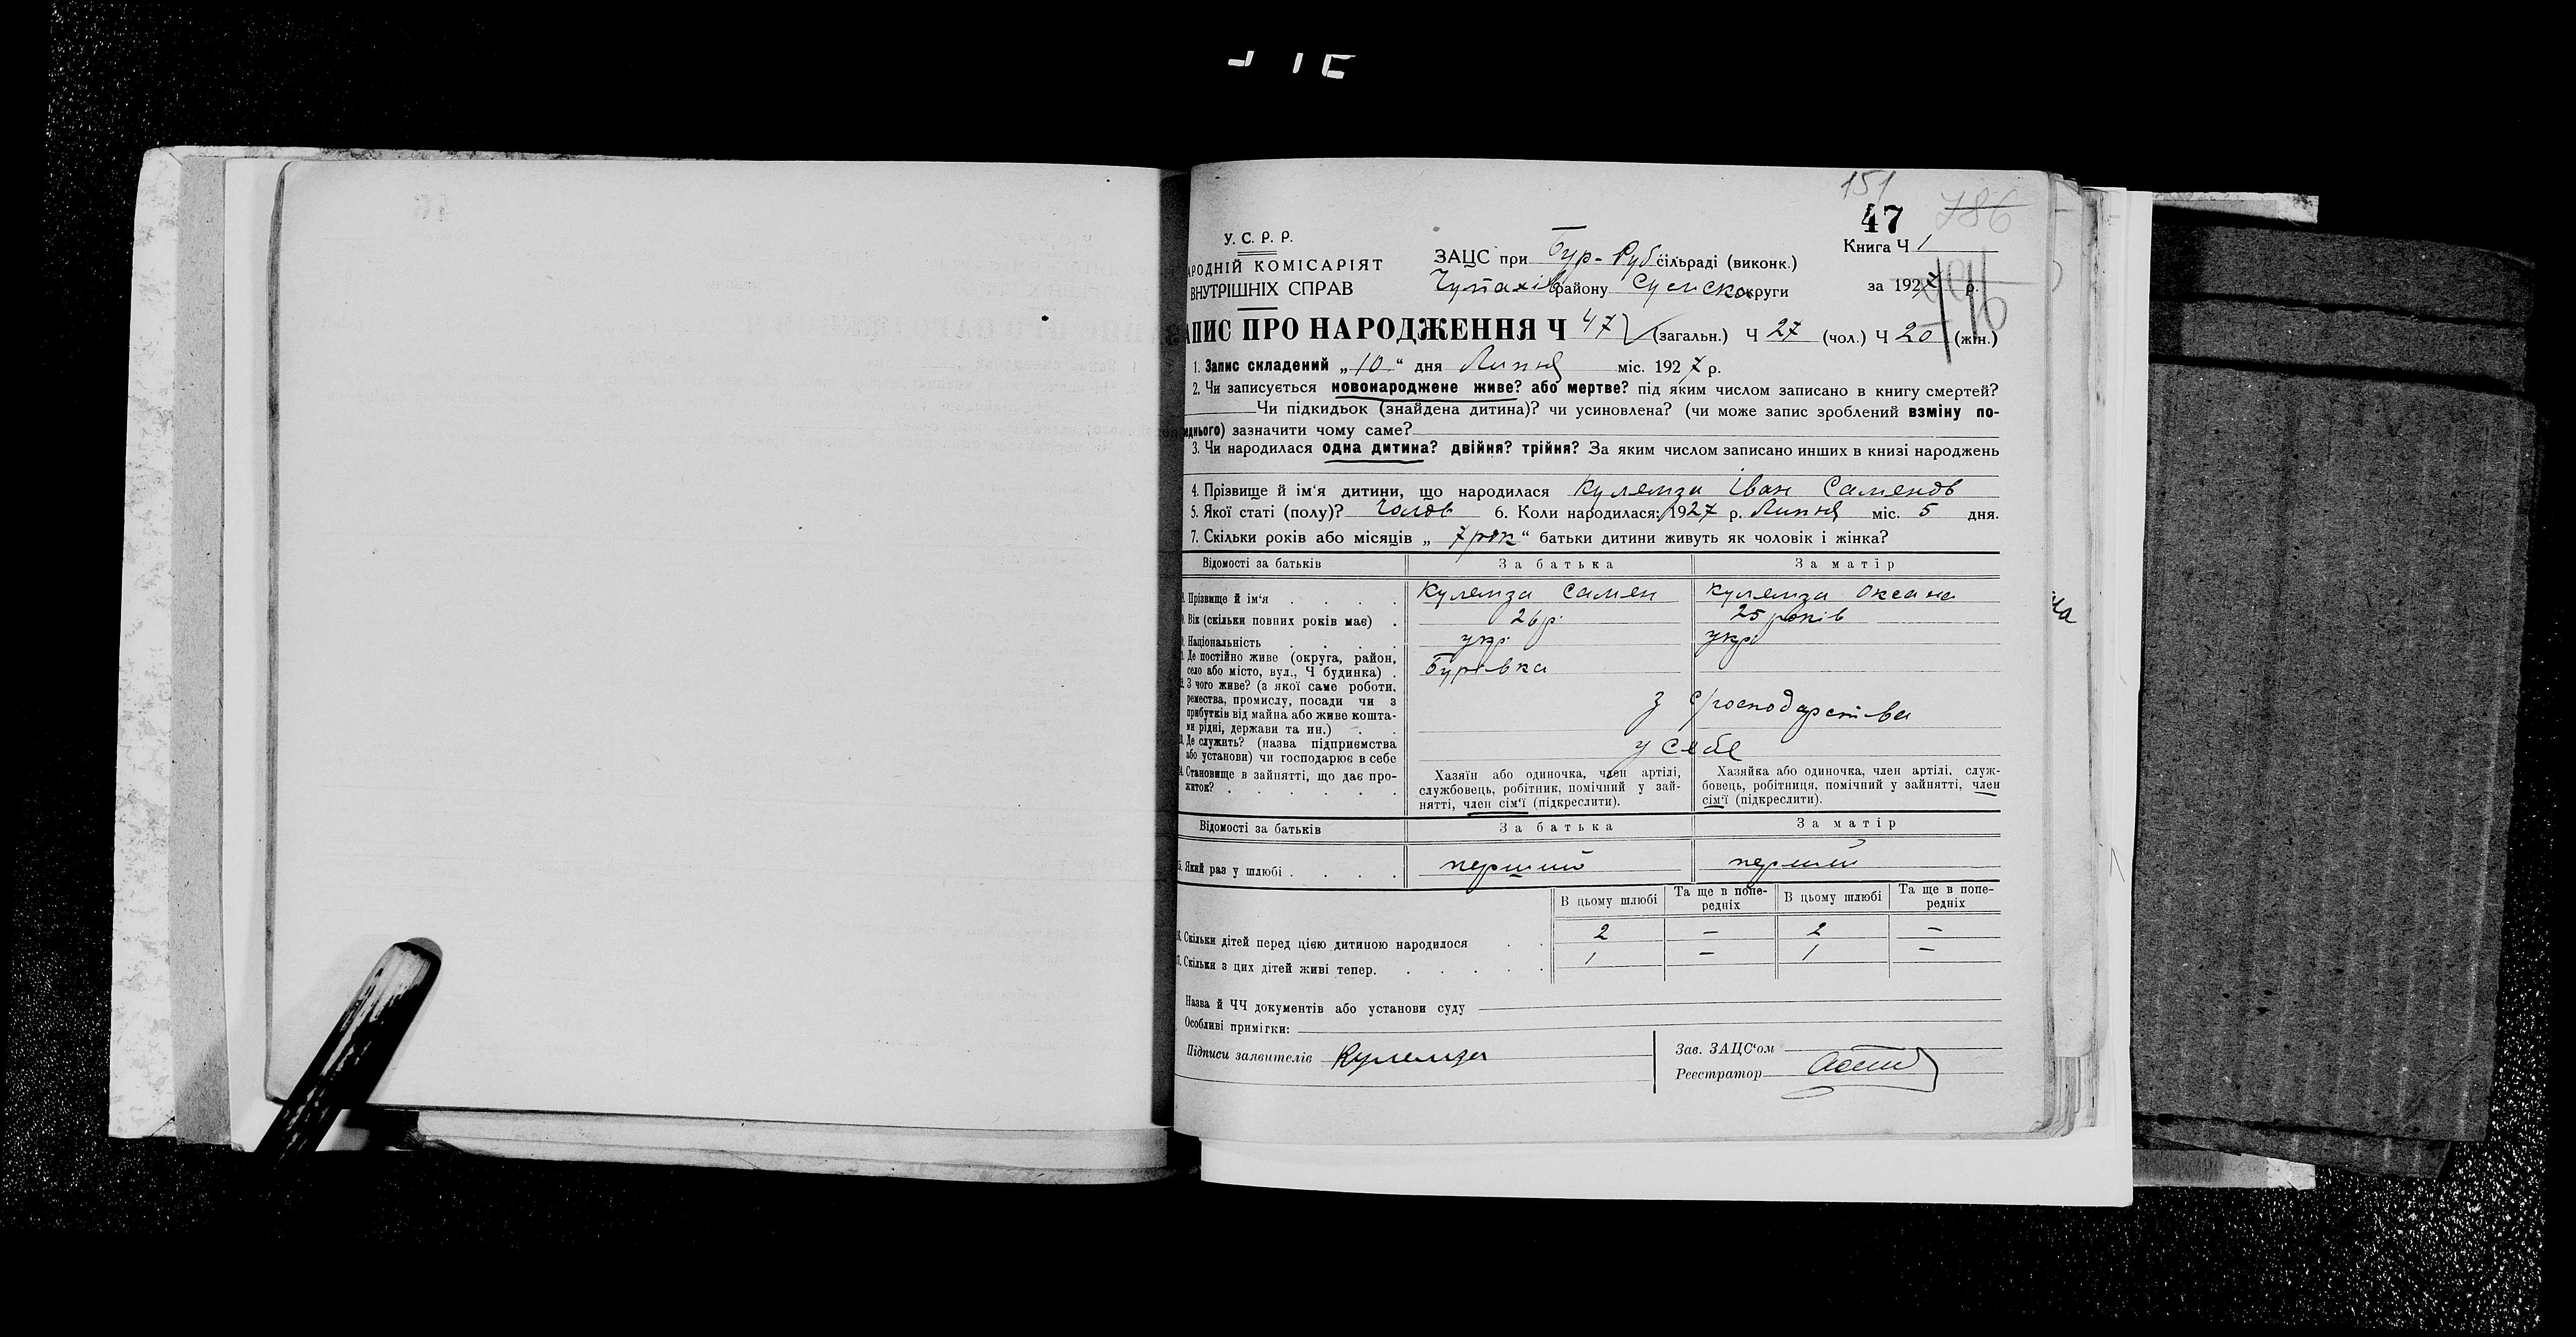 151
47 786
У. С. Р. Р.
Книга Ч 1
АРОДНІЙ КОМІСАРІЯТ
ВНУТРІШНІХ СПРАВ
ЗАЦС при Бур-Руб сільраді (виконк.)
Чупахів району Сумско округи
за 1927 р.
АПИС ПРО НАРОДЖЕННЯ Ч 47 (загальн.) Ч 27 (чол.) Ч 20 (жін.)
1. Запис складений „10“ дня Липня міс. 1927 р.
2. Чи записується новонароджене живе? або мертве? під яким числом записано в книгу смертей?
Чи підкидьок (знайдена дитина)? чи усиновлена? (чи може запис зроблений взміну по-
еднього) зазначити чому саме?
3. Чи народилася одна дитина? двійня? трійня? За яким числом записано инших в книзі народжень
4. Прізвище й ім‘я дитини, що народилася Кулемза Іван Саменов
5. Якої статі (полу)? Чолов 6. Коли народилася: 1927 р. Липня міс. 5 дня.
7. Скільки років або місяців „7 рок“ батьки дитини живуть як чоловік і жінка?
Відомості за батьків За батька За матір
8. Прізвище й ім‘я Кулемза Самен Кулемза Оксана
9. Вік (скільки повних років має) 26 р. 25 років
Національність укр. укр
Де постійно живе (округа, район,
село або місто, вул., Ч будинка) Бурівка
З чого живе? (з якої саме роботи,
ремества, промислу, посади чи з
прибутків від майна або живе кошта-
ми рідні, держави та ин.) з с/господарства
Де служить? (назва підприємства
або установи) чи господарює в себе у себе
Становище в зайнятті, що дає про-
житок?
Хазяїн або одиночка, член артілі,
службовець, робітник, помічний у зай-
нятті, член сім‘ї (підкреслити).
Хазяйка або одиночка, член артілі, служ-
бовець, робітниця, помічний у зайнятті, член
сім‘ї (підкреслити).
Відомості за батьків За батька За матір
Який раз у шлюбі перший перший
В цьому шлюбі Та ще в попе-
редніх В цьому шлюбі Та ще в попе-
редніх
Скільки дітей перед цією дитиною народилося 2 – 2 –
Скільки з цих дітей живі тепер. 1 – 1 –
Назва й ЧЧ документів або установи суду
Особливі примігки:
Підписи заявителів Кулемза
Зав. ЗАЦС‘ом
Реєстратор